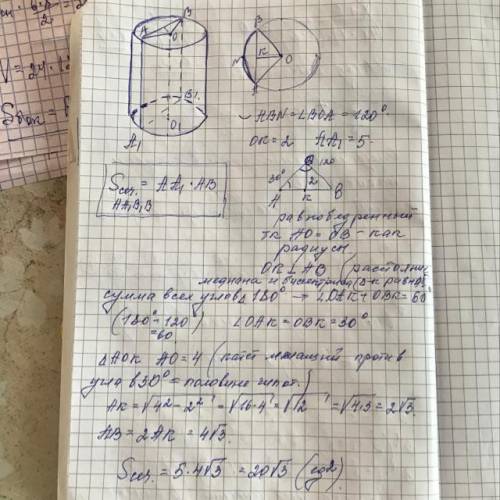 A B O
B1
A1 O1
B K O
∪ ABN = ∠BOA = 120°
OK = 2 AA₁ = 5
Sсеч. = AA₁ · AB
AA₁B₁B
120
30° 2
A K B
равнобедренный
тк AO = OB - как
радиусы
OK ⊥ AB (расстояние
медиана и биссектриса
сумма всех углов Δ 180° → ∠OAK + OBK = 60°
(180° - 120 ∠OAK = OBK = 30°
= 60)
Δ AOK AO = 4 (катет лежащий против
угла в 30° = половине гипот.)
AK = √4² - 2² = √16 - 4 = √12 = √4·3 = 2√3
AB = 2AK = 4√3.
Sсеч. = 5 · 4√3 = 20√3 (ед²)